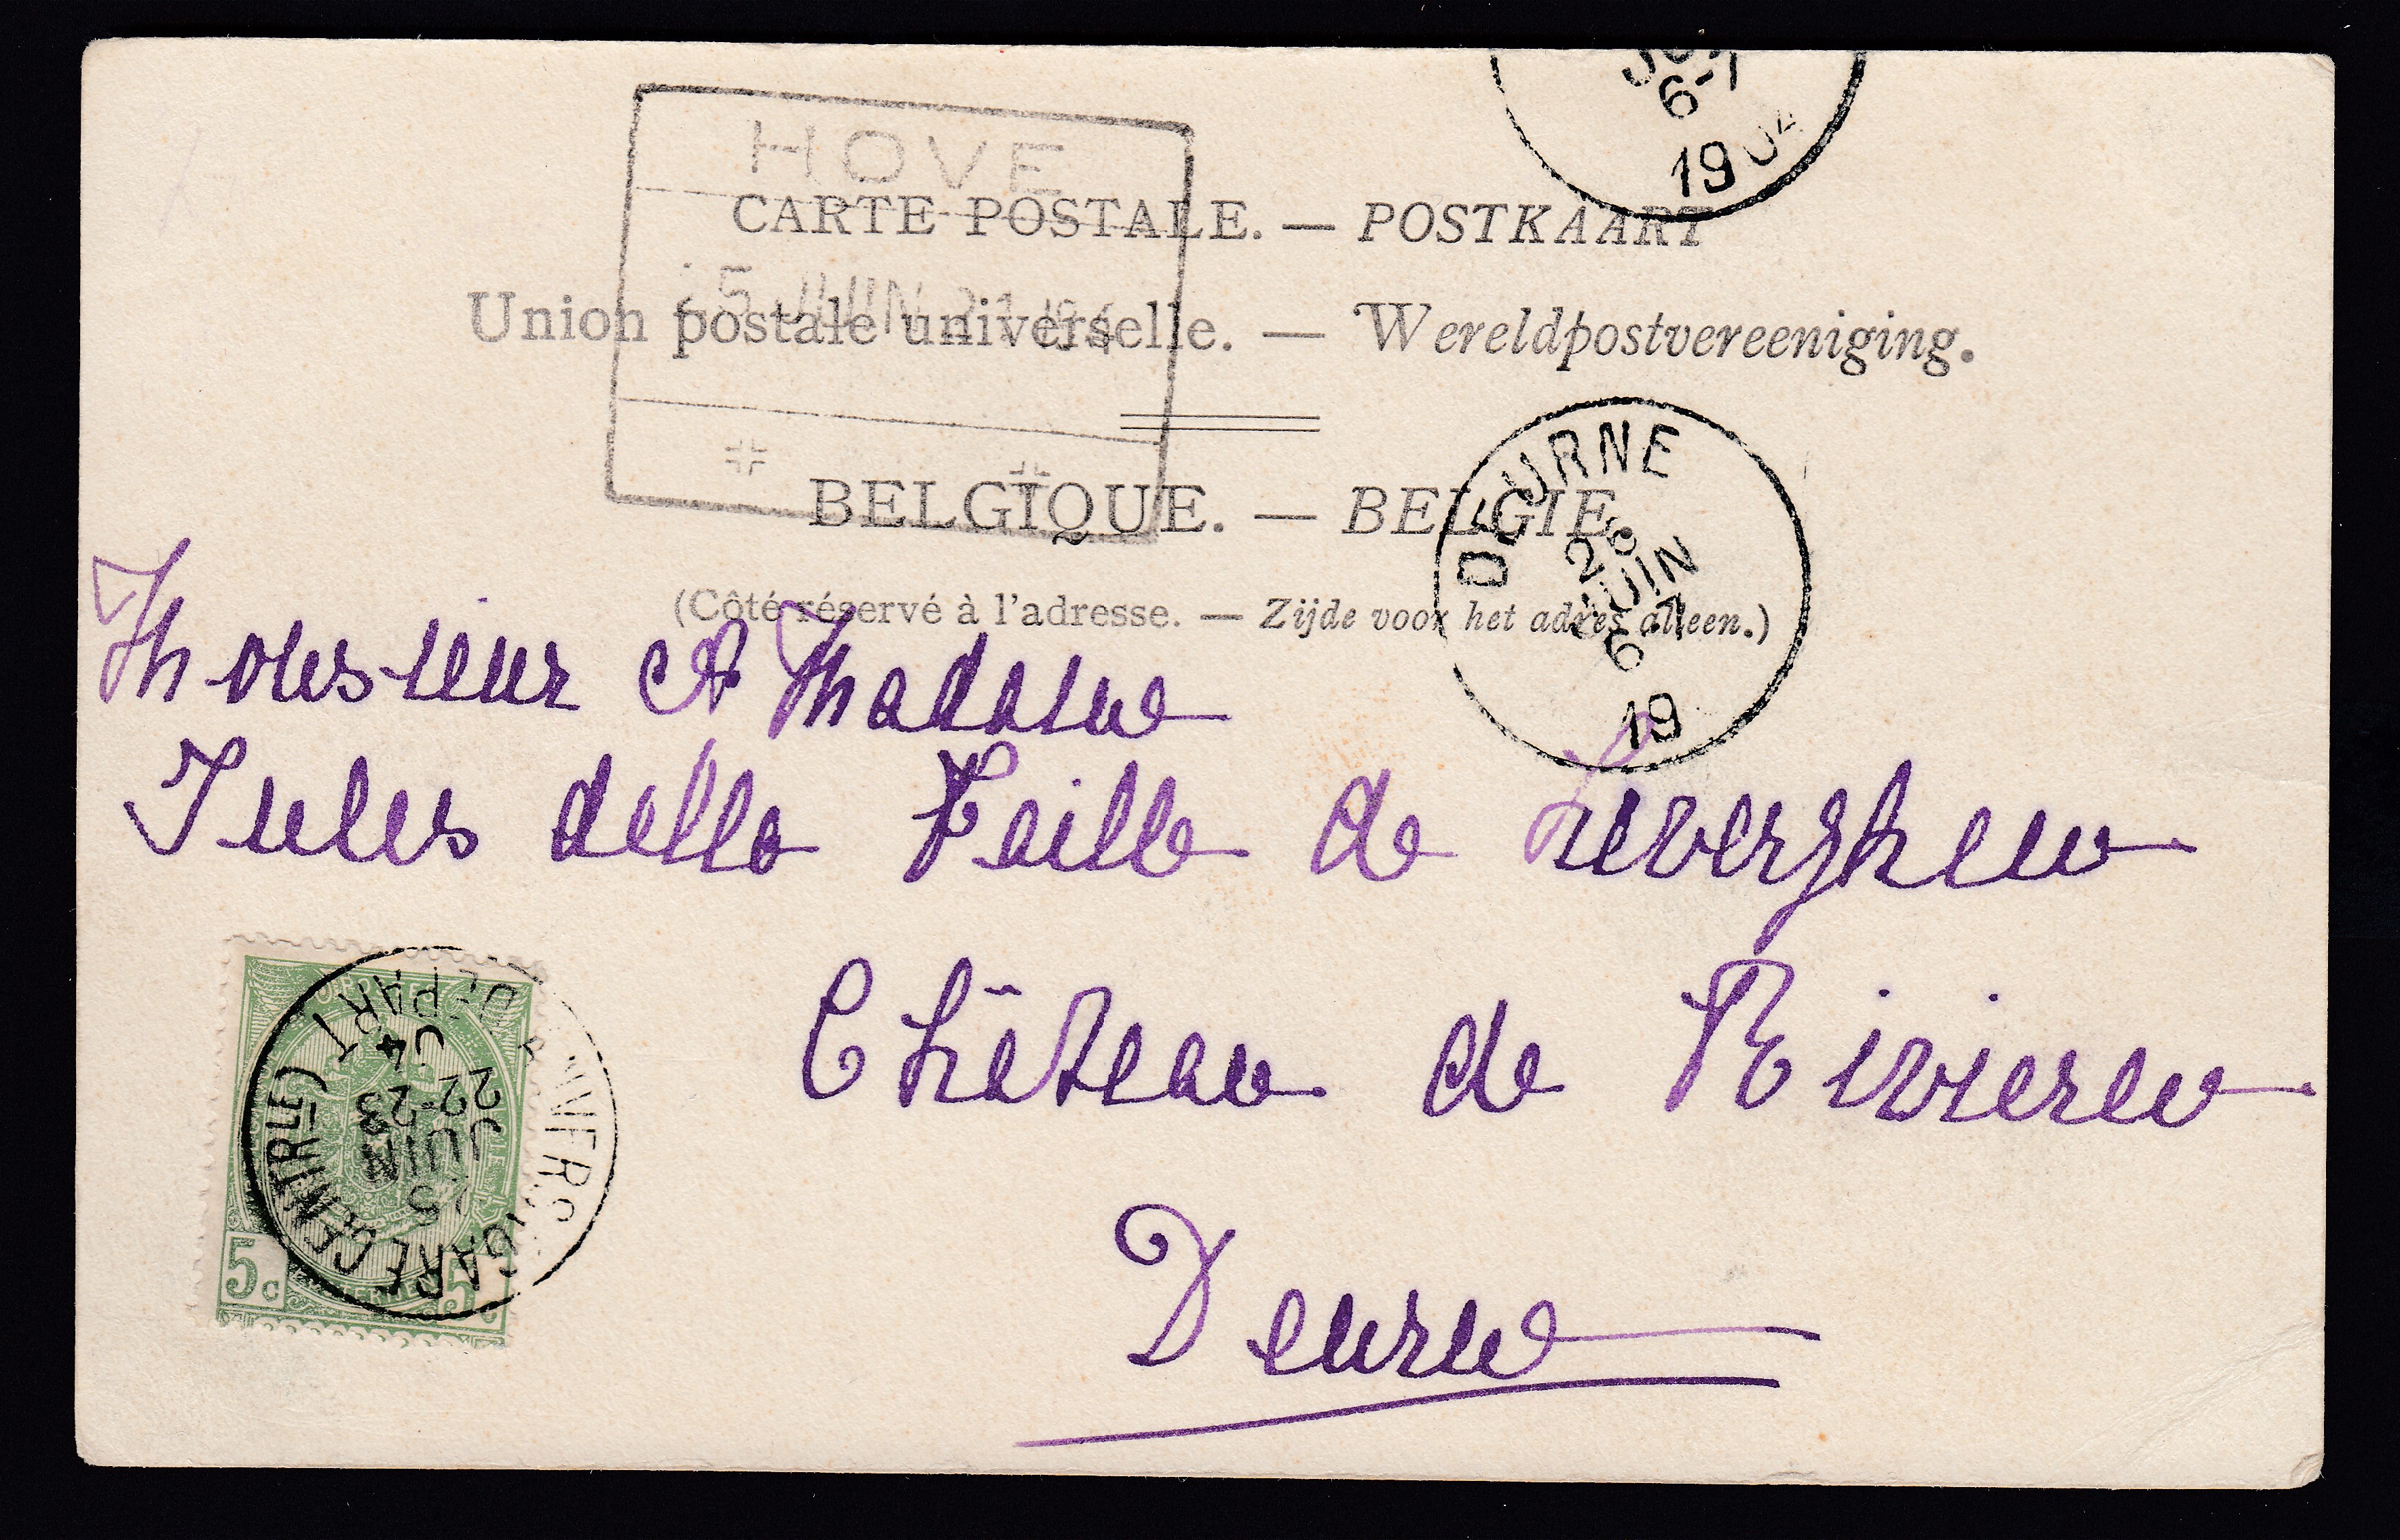 HOVE
6-7
1904
CARTE POSTALE. — POSTKAART
25 JUIN 21 194
Union postale universelle. — Wereldpostvereeniging.
BELGIQUE. — BELGIE.
DEURNE
26
JUIN
6-7
19
(Côté réservé à l'adresse. — Zijde voor het adres alleen.)
Monsieur et Madame
Jules della Faille de Leverghem
Château de Rivieren
Deurne
ANVERS (GARE CENTRLE)
25
JUIN
22-23
04
DEPART
5c 5c